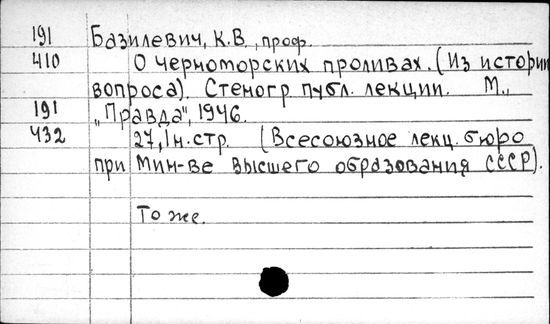 191 Базилевич, К.В., проф.
410 О черноморских проливах. (Из истории
вопроса). Стеногр. публ. лекции. М.,
191 „Правда", 1946.
432 27, 1 н. стр. (Всесоюзное лекц. бюро
при Мин-ве высшего образования СССР).
То же.